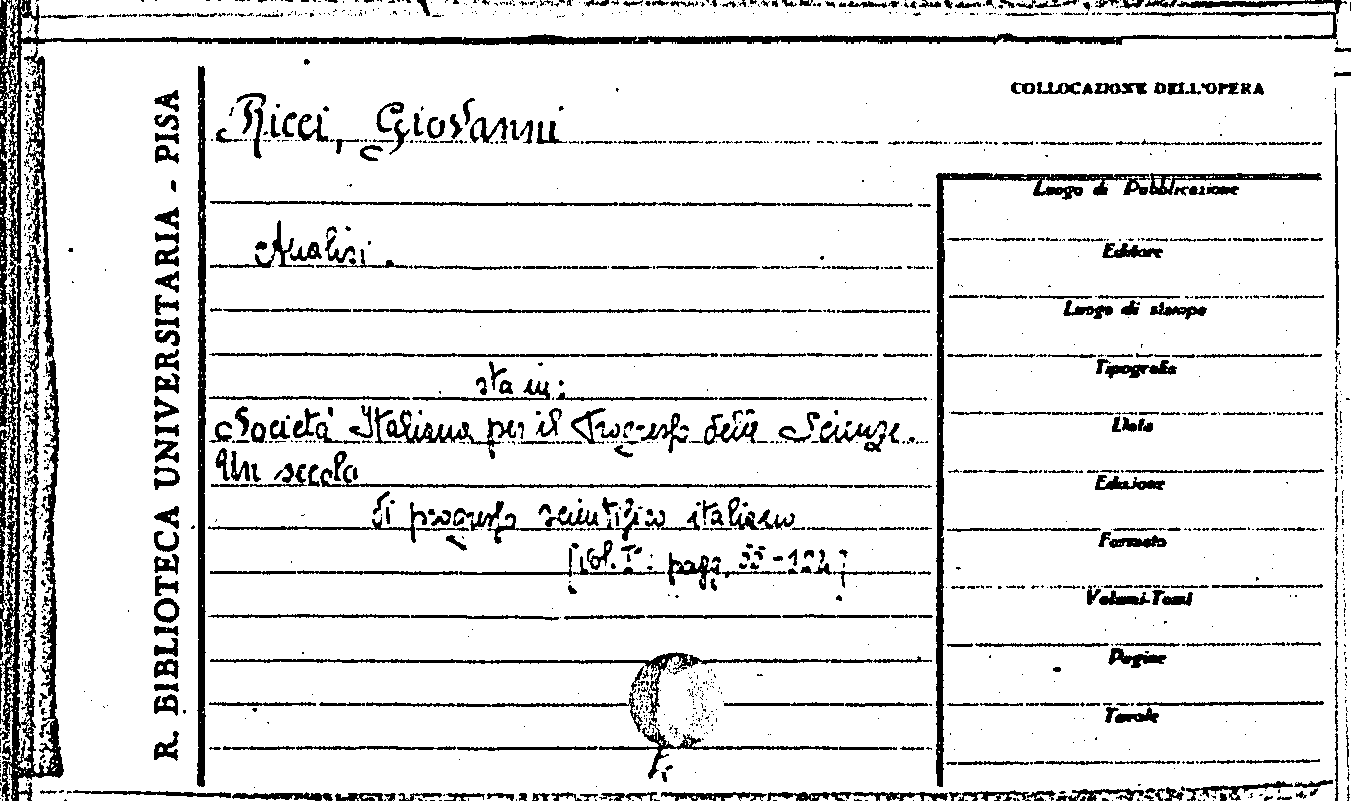 R. BIBLIOTECA UNIVERSITARIA - PISA
Ricci, Giovanni
Analisi.
sta in:
Società Italiana per il Progresso delle Scienze.
Un secolo
di progresso scientifico italiano
[Vol. I°: pagg. 55-124]
COLLOCAZIONE DELL'OPERA
Luogo di Pubblicazione
Editore
Luogo di stampa
Tipografia
Data
Edizione
Formato
Volumi-Tomi
Pagine
Tavole